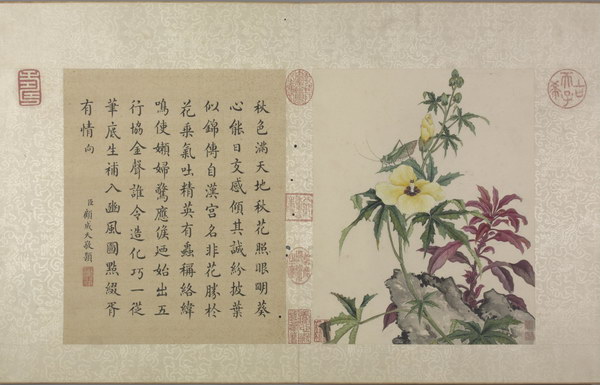 秋色滿天地秋花照眼明葵
心能日感傾其誠紛披葉
似錦傳自漢宮名非花勝於
花乘氣吐精英有蟲稱絡緯
鳴使嬾婦驚應候廼始出五
行協金聲誰令造化巧一從
筆底生補入豳風圖點綴胥
有情向
臣顧成天敬題